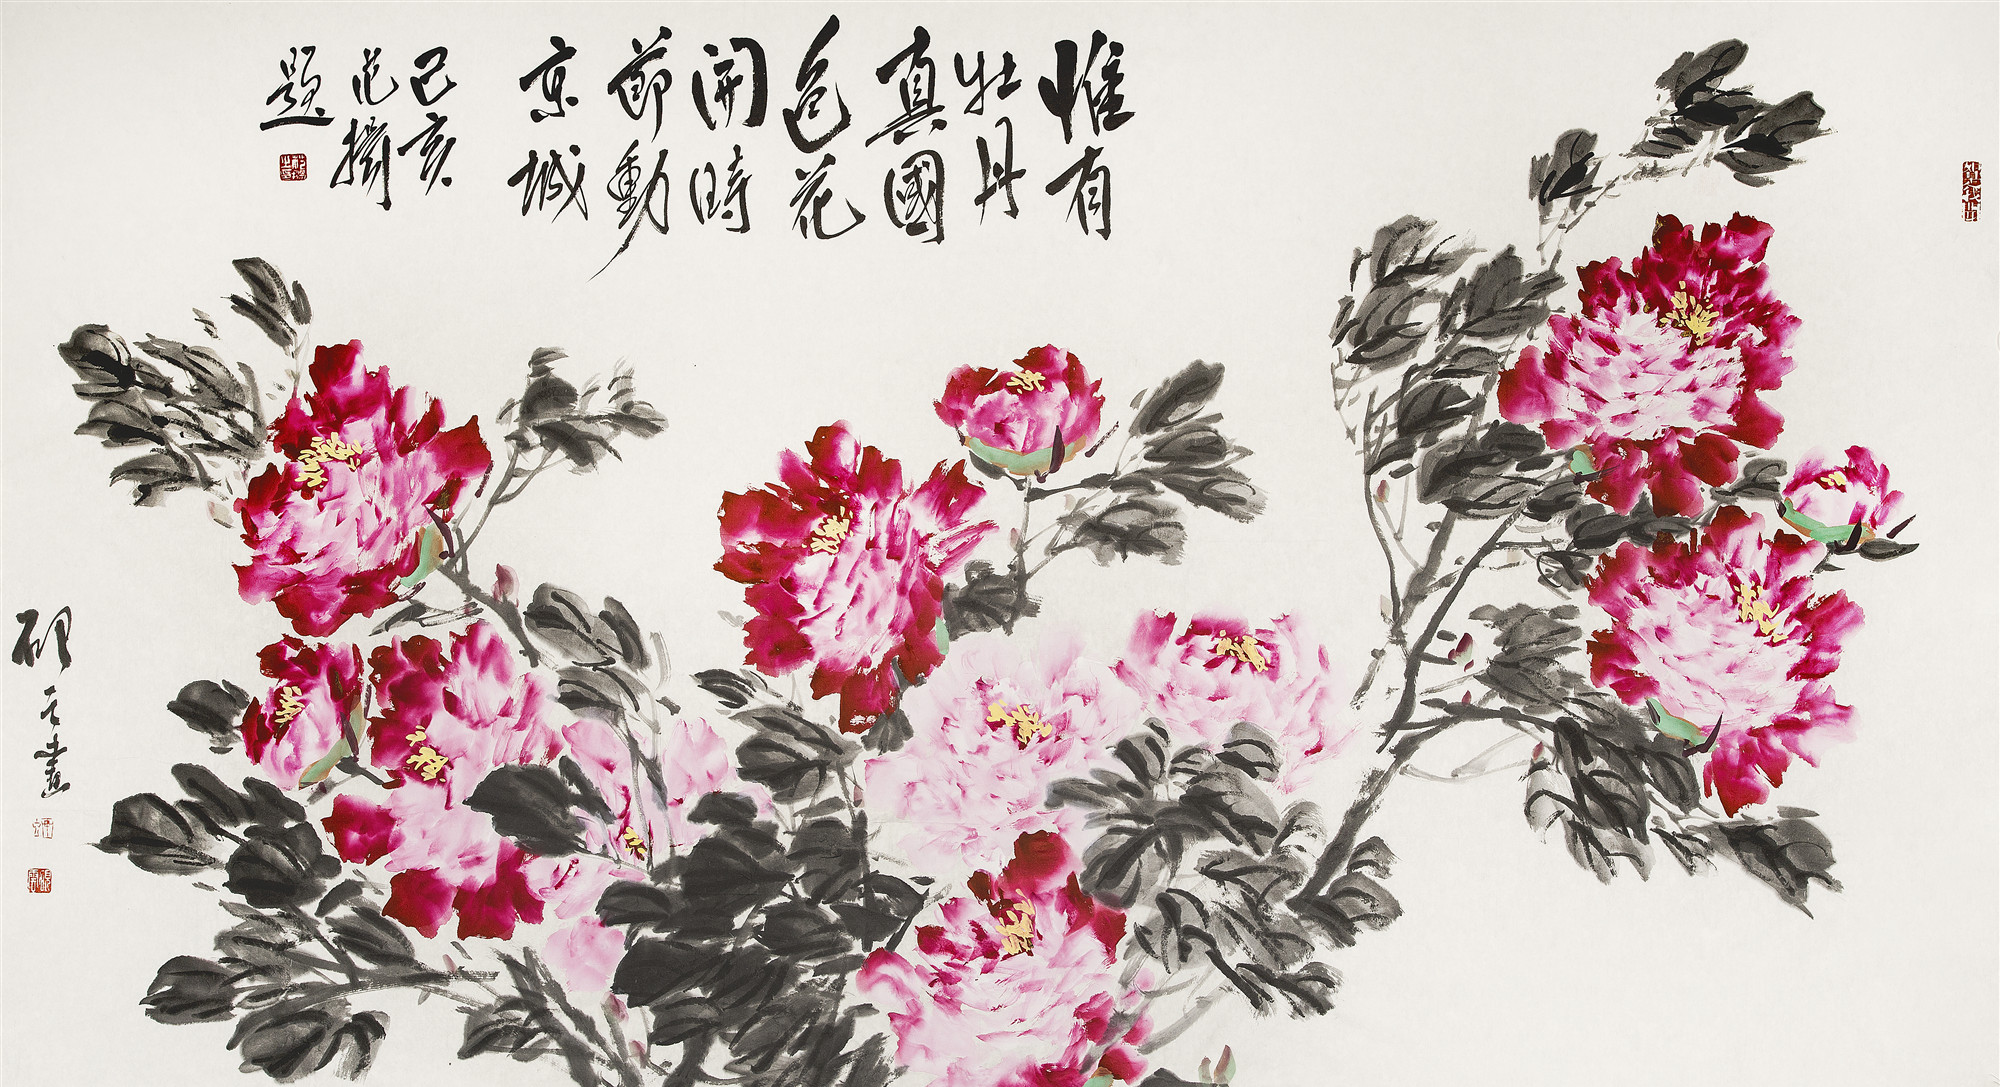 惟有
牡丹
真國
色花
開時
節動
京城
己亥
范
題
畫